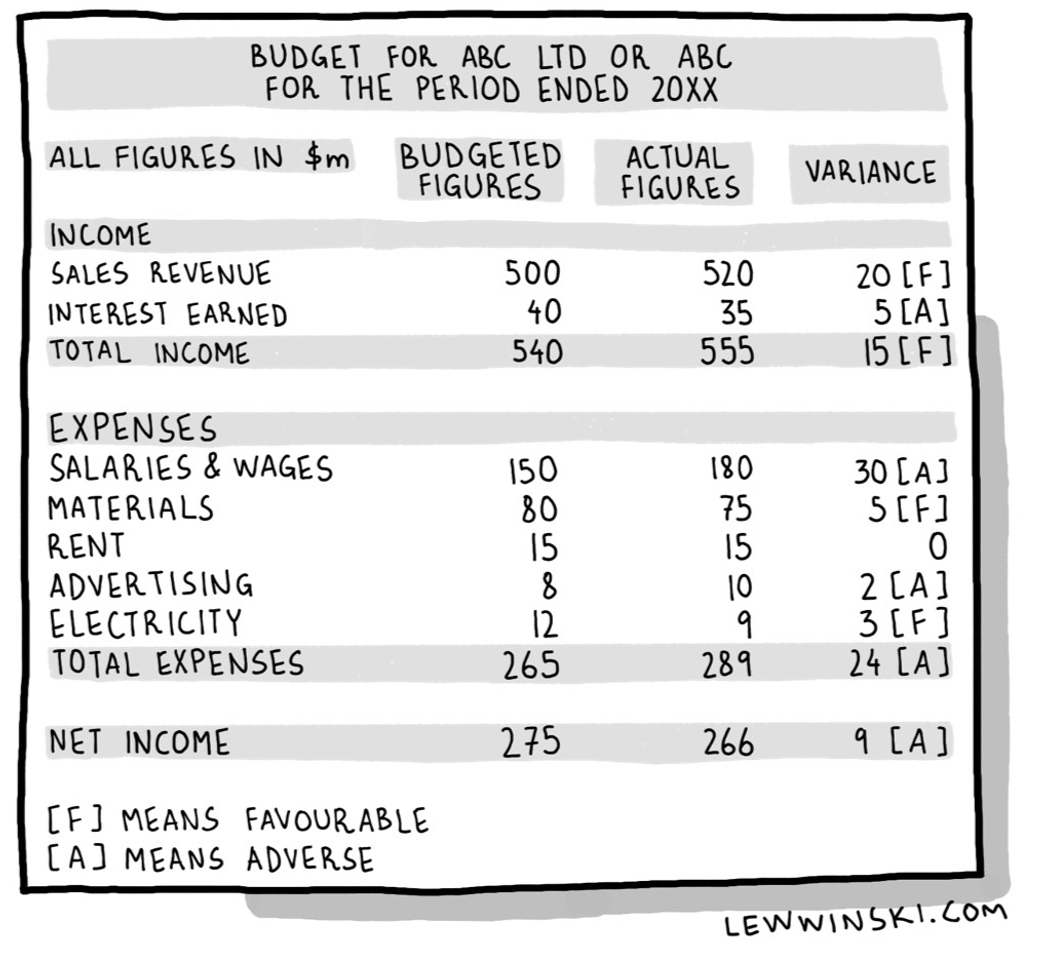 BUDGET FOR ABC LTD OR ABC
FOR THE PERIOD ENDED 20XX
ALL FIGURES IN $m BUDGETED FIGURES ACTUAL FIGURES VARIANCE
INCOME
SALES REVENUE 500 520 20 [F]
INTEREST EARNED 40 35 5 [A]
TOTAL INCOME 540 555 15 [F]
EXPENSES
SALARIES & WAGES 150 180 30 [A]
MATERIALS 80 75 5 [F]
RENT 15 15 0
ADVERTISING 8 10 2 [A]
ELECTRICITY 12 9 3 [F]
TOTAL EXPENSES 265 289 24 [A]
NET INCOME 275 266 9 [A]
[F] MEANS FAVOURABLE
[A] MEANS ADVERSE
LEWWINSKI.COM